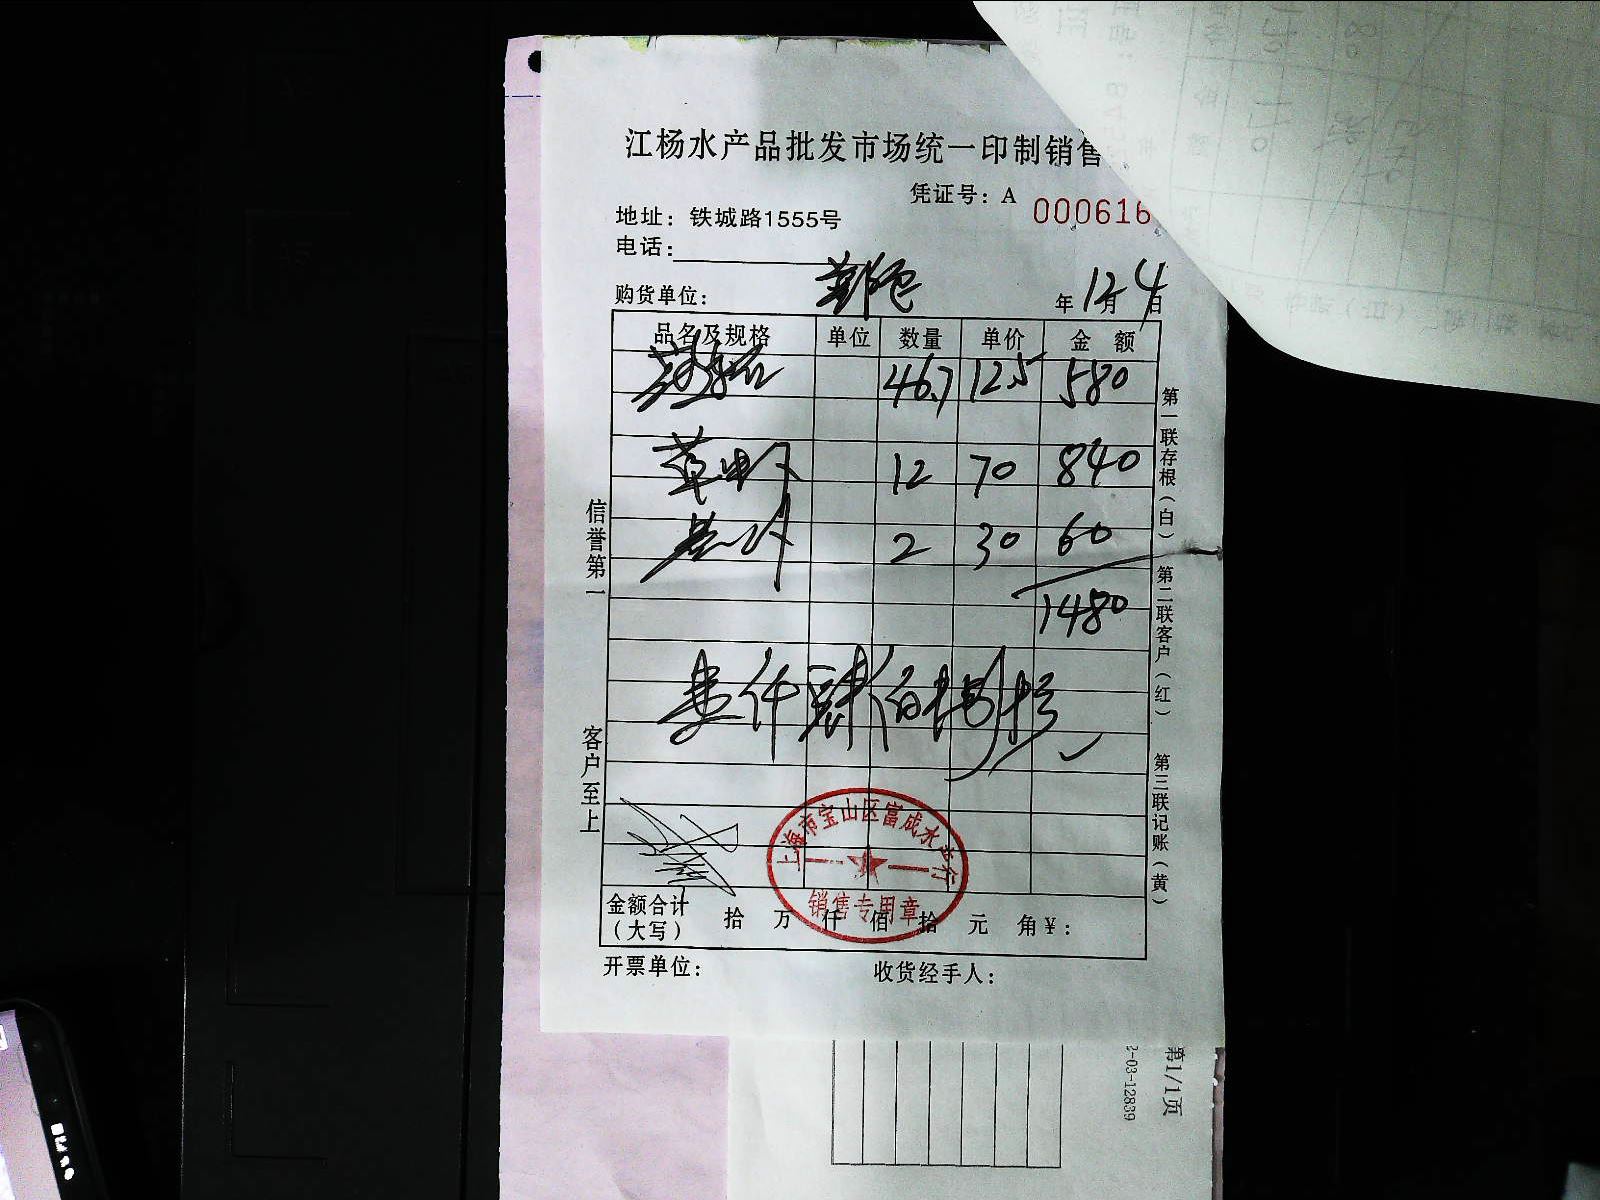 江杨水产品批发市场统一印制销售
凭证号：A 000616
地址：铁城路1555号
电话：
购货单位：
年12月4日
品名及规格 单位 数量 单价 金额
46.7 12.5 580
草虾 12 70 840
2 30 60
1480
壹仟肆佰捌拾
信誉第一
客户至上
第一联存根（白） 第二联客户（红） 第三联记账（黄）
上海市宝山区富成水产行
销售专用章
金额合计（大写） 拾 万 仟 佰 拾 元 角 ¥：
开票单位： 收货经手人：
第1/1页
2-03-12839